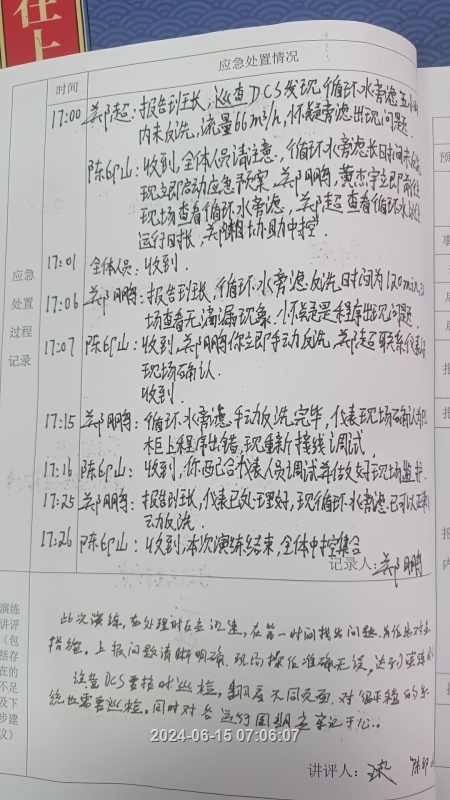 在上
应急处置情况
时间
17:00 郑超:报告班长,巡查DCS发现循环水旁滤五小时
内未反洗,流量66m³/h,怀疑旁滤出现问题.
陈邱山:收到,全体人员请注意,循环水旁滤长时间未反洗
现立即启动应急预案,郑鹏,黄杰宇立即前往
现场查看循环水旁滤,郑超查看循环水
运行时长,郑 协助中控.
17:01 全体人员:收到.
17:06 郑鹏:报告班长,循环水旁滤反洗时间为120min,现
场查看无滴漏现象,怀疑是程序出现问题.
17:07 陈邱山:收到,郑鹏你立即手动反洗,郑超联系仪表
现场确认.
收到.
17:15 郑鹏:循环水旁滤手动反洗完毕,仪表现场确认
柜上程序出错,现重新接线调试.
17:16 陈邱山:收到,你配合仪表人员调试并做好现场监护.
17:25 郑鹏:报告班长,仪表已处理好,现循环水旁滤已可以
动反洗.
17:26 陈邱山:收到,本次演练结束,全体中控集合
应急
处置
过程
记录
记录人:郑鹏
演练
讲评
(包
括存
在的
不足
及下
步建
议)
此次演练,在处理时反应迅速,在第一时间找出问题,
措施.上报问题清晰明确.现场操作准确无误,达到演练
DCS要按时巡检,翻 不同页面.对 的系
统也需要巡检.同时对各运行周期 牢记于心.
2024-06-15 07:06:07
讲评人: